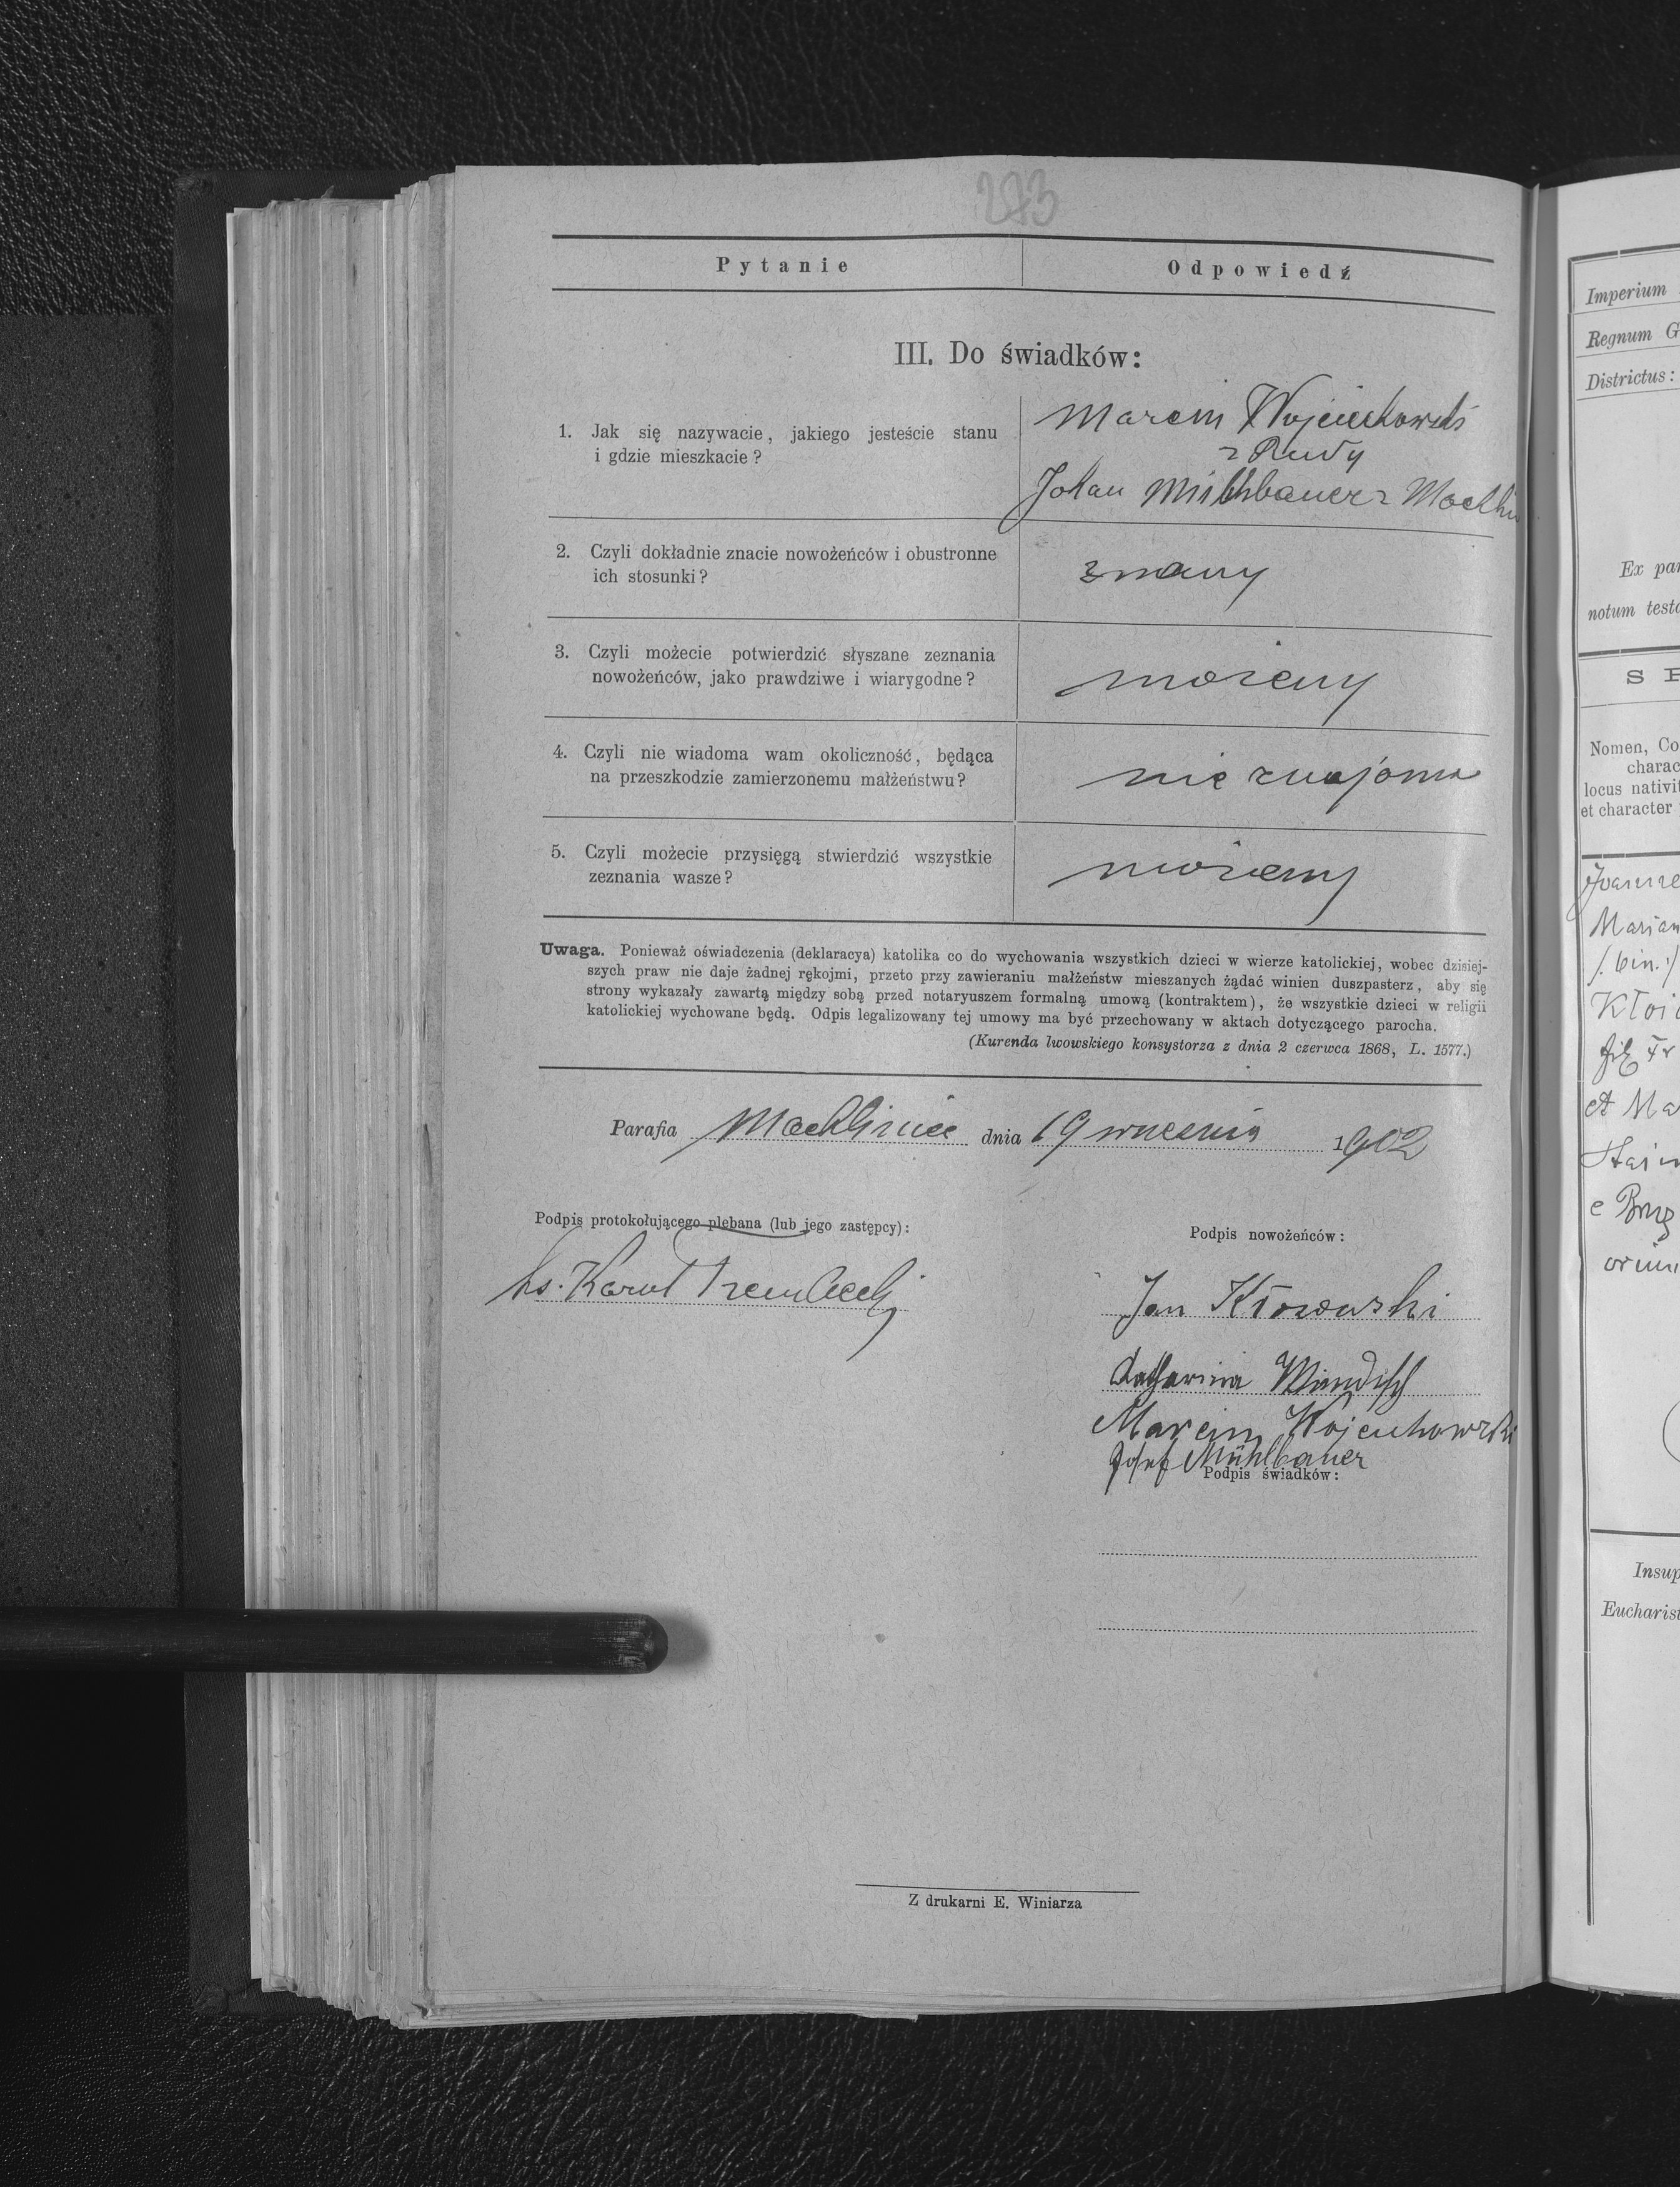 273
Pytanie
Odpowiedź
III. Do świadków:
1. Jak się nazywacie, jakiego jesteście stanu
i gdzie mieszkacie?
Marcin Wojciechowski
z Rudy
Johan Mühlbauer z Machlin
2. Czyli dokładnie znacie nowożeńców i obustronne
ich stosunki?
znamy
3. Czyli możecie potwierdzić słyszane zeznania
nowożeńców, jako prawdziwe i wiarygodne?
możemy
4. Czyli nie wiadoma wam okoliczność, będąca
na przeszkodzie zamierzonemu małżeństwu?
nie znajoma
5. Czyli możecie przysięgą stwierdzić wszystkie
zeznania wasze?
możemy
Uwaga. Ponieważ oświadczenia (deklaracya) katolika co do wychowania wszystkich dzieci w wierze katolickiej, wobec dzisiej-
szych praw nie daje żadnej rękojmi, przeto przy zawieraniu małżeństw mieszanych żądać winien duszpasterz, aby się
strony wykazały zawartą między sobą przed notaryuszem formalną umową (kontraktem), że wszystkie dzieci w religii
katolickiej wychowane będą. Odpis legalizowany tej umowy ma być przechowany w aktach dotyczącego parocha.
(Kurenda lwowskiego konsystorza z dnia 2 czerwca 1868, L. 1577.)
Parafia Machliniec dnia 19 września 1902
Podpis protokołującego plebana (lub jego zastępcy):
ks. Karol
Podpis nowożeńców:
Jan Kłosowski
Katharina Windisch
Marcin Wojciechowski
Josef Mühlbauer
Podpis świadków:
Z drukarni E. Winiarza
Imperium
Regnum G
Districtus:
Ex par
notum testo
S P
Nomen, Co
charac
locus nativit
et character
Joanne
Marian
Kłos
fil. Fr
et Ma
e
Insup
Eucharist